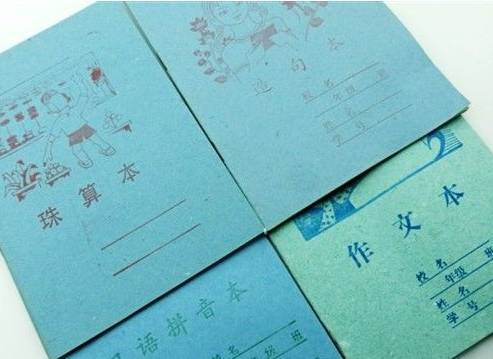 珠算本
造句本
校名
年级 班
姓名
学号
作文本
校名
年级 班
姓名
学号
汉语拼音本
年级 班